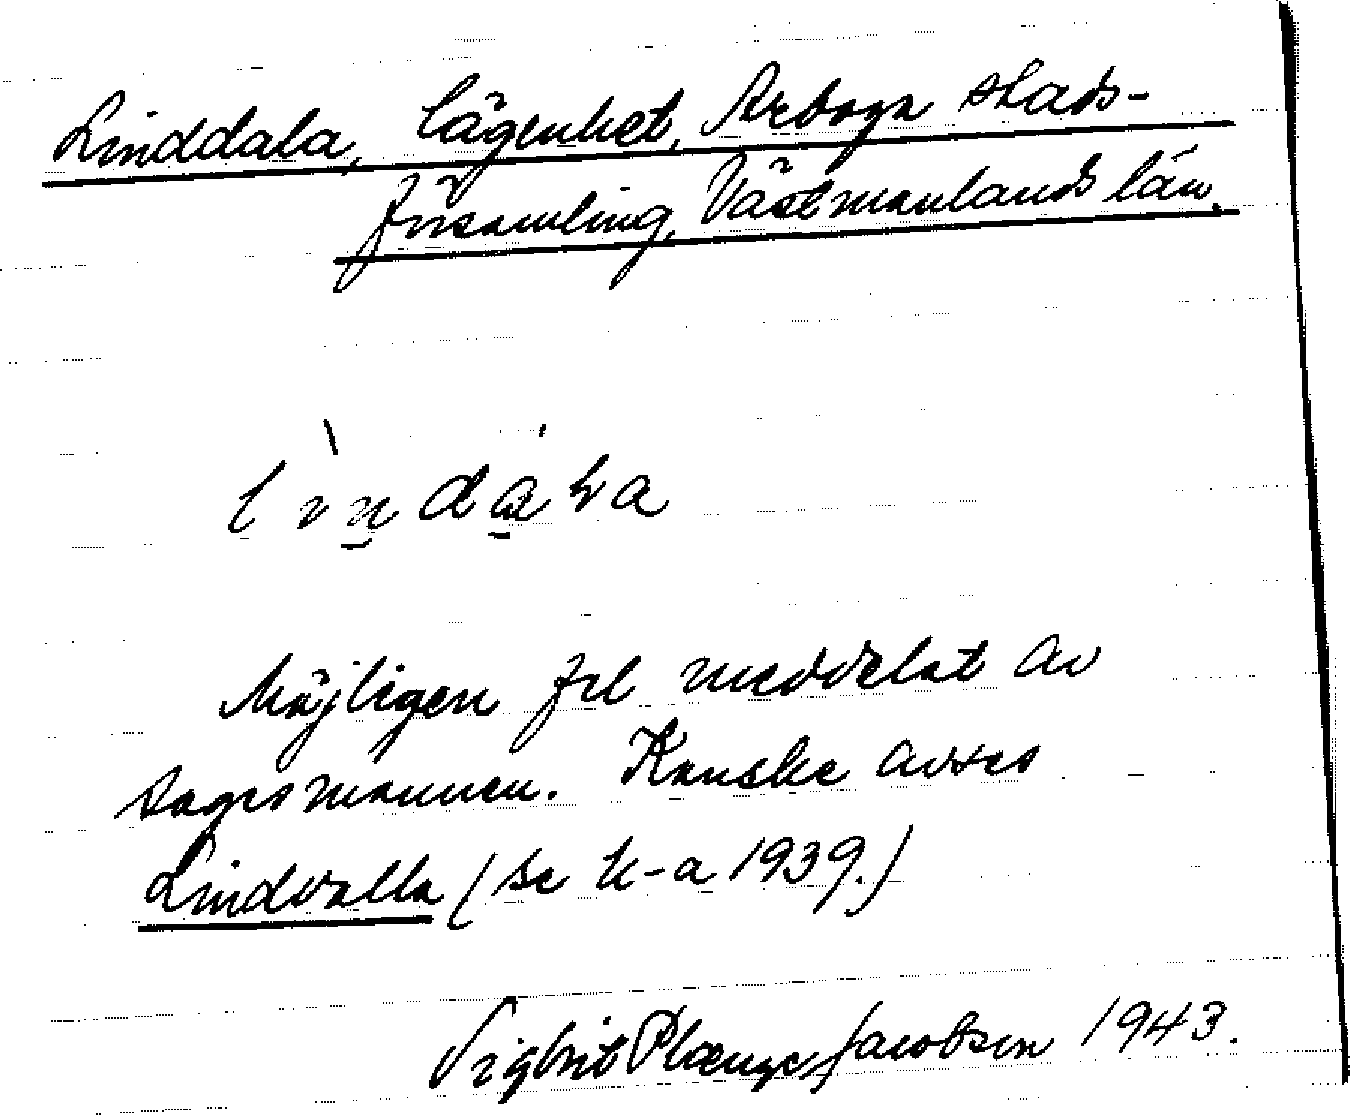 Linddala, lägenhet, Arboga stads-
församling, Västmanlands län.
Möjligen fel meddelat av
sagesmannen. Kanske avses
Lindvalla (se k-a 1939.)
Sigbrit Plænge Jacobson 1943.